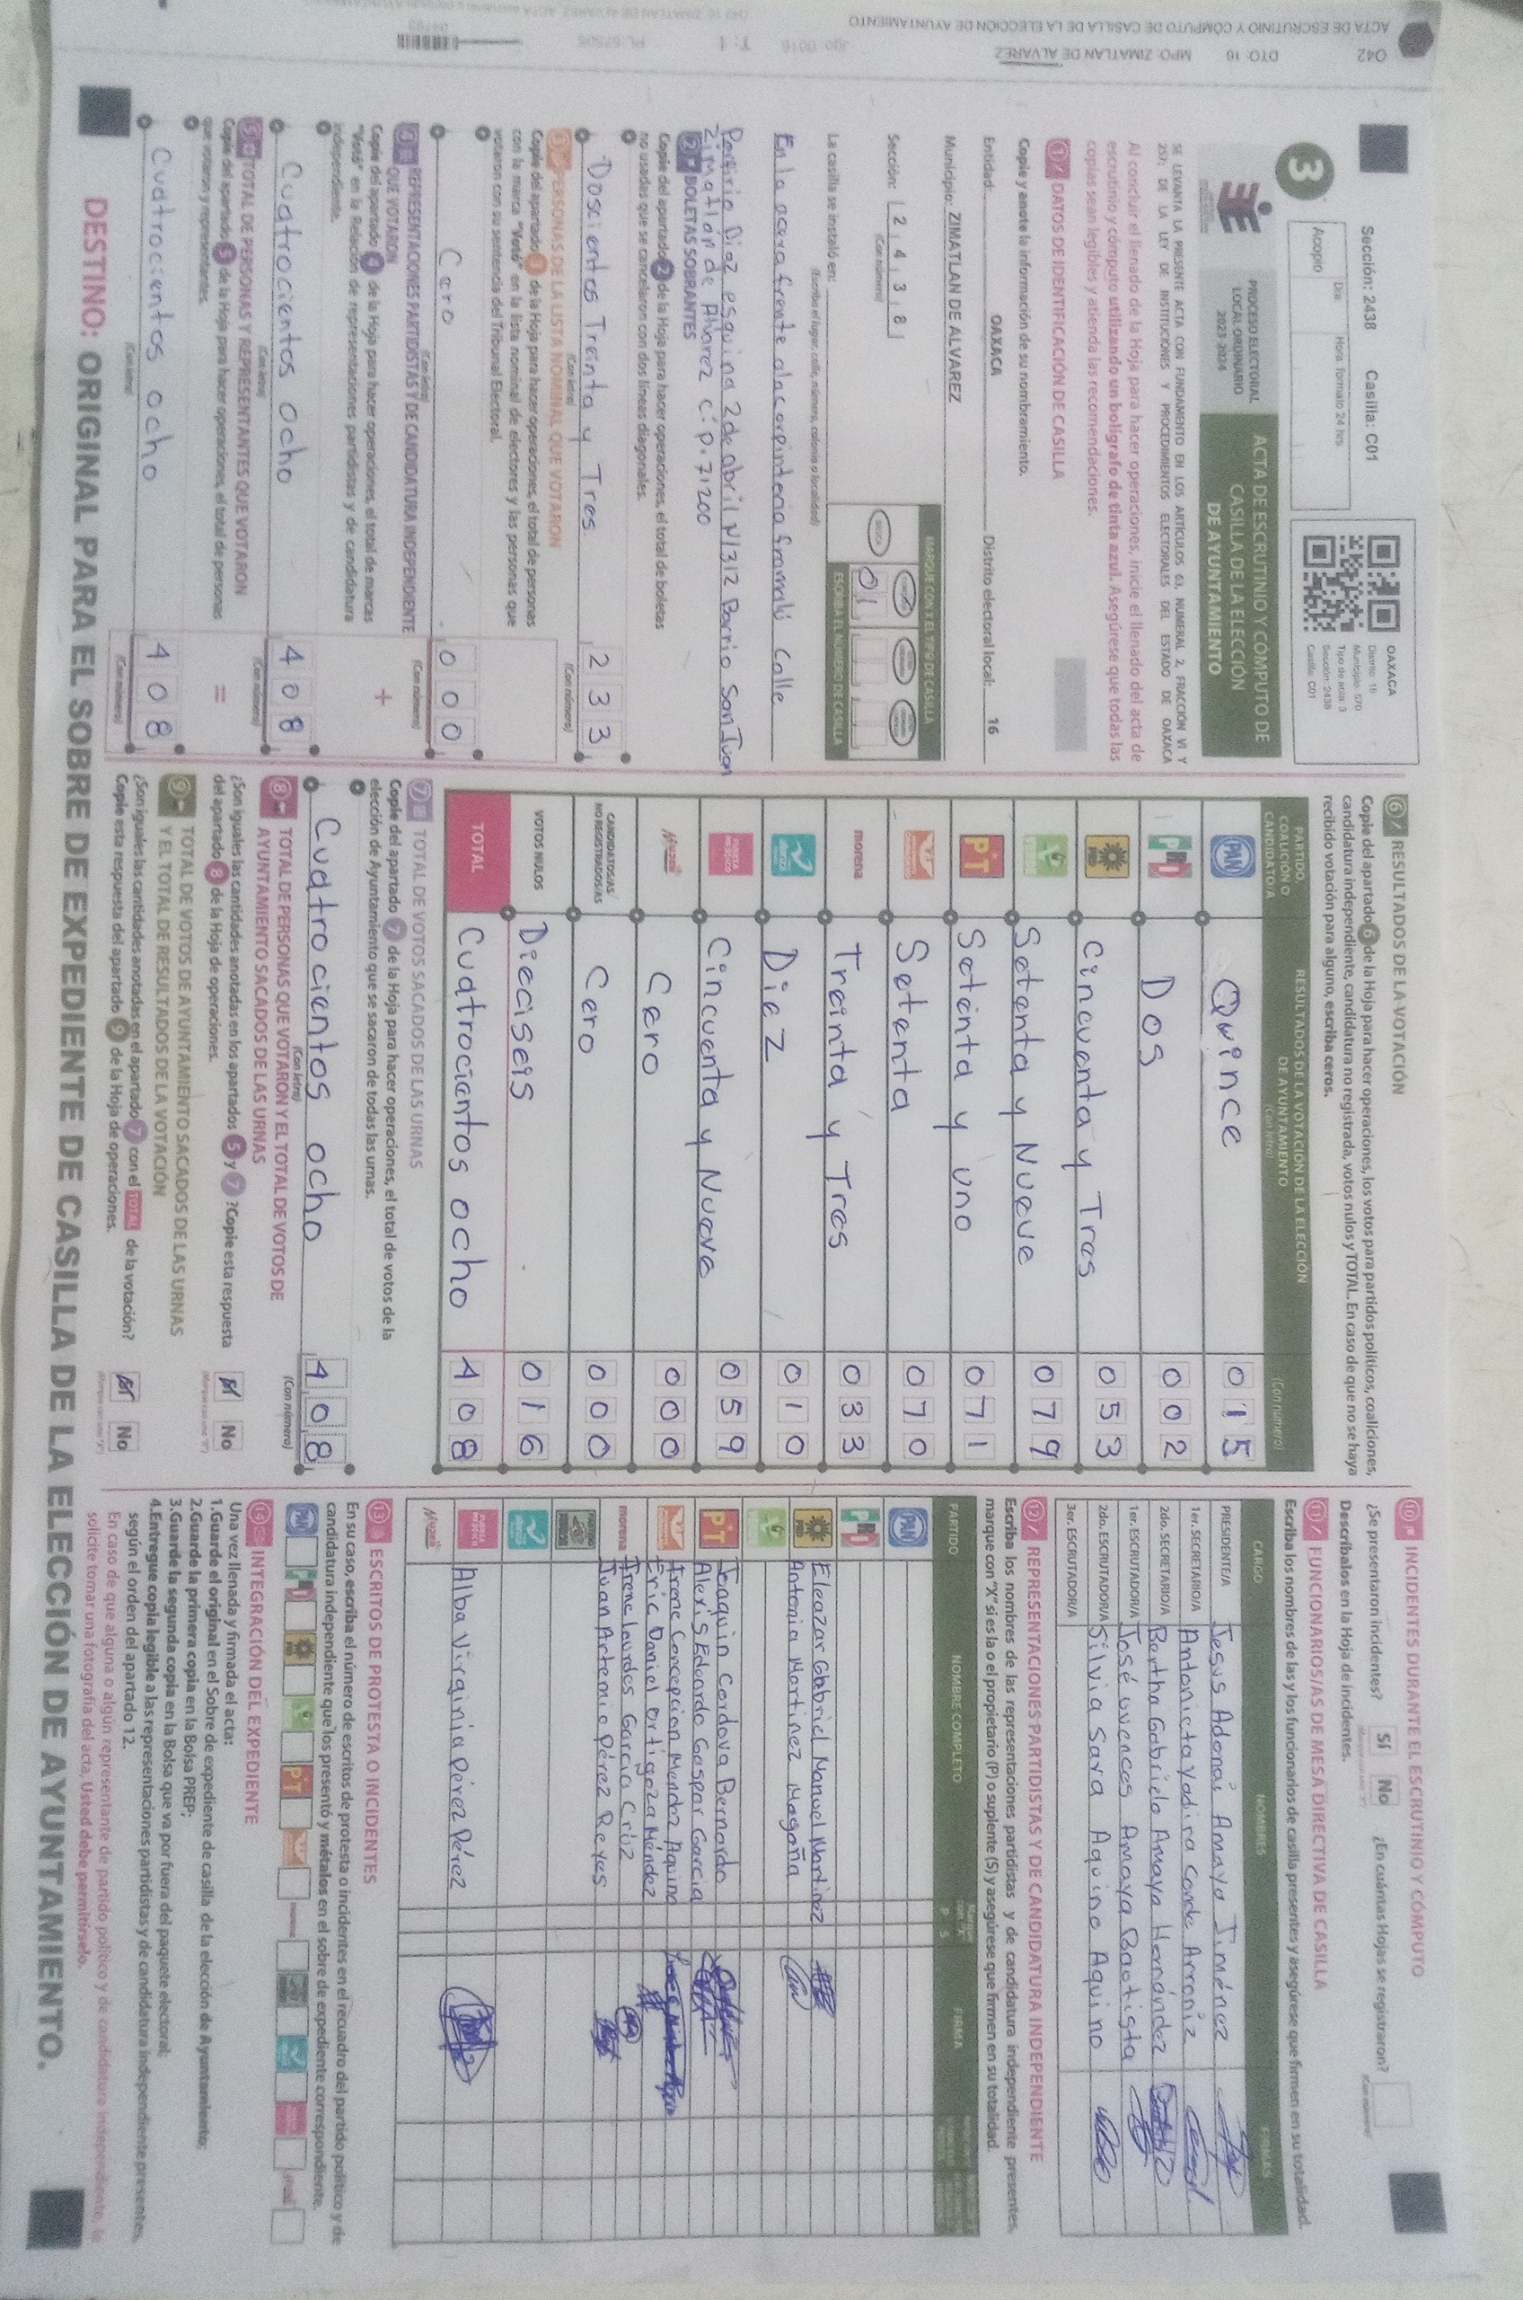 042 DTO: 16 MPO: ZIMATLAN DE ALVAREZ
ACTA DE ESCRUTINIO Y CÓMPUTO DE CASILLA DE LA ELECCION DE AYUNTAMIENTO
Sección: 2438 Casilla: C01
Acopio
Día Hora formato 24 hrs
OAXACA
Distrito: 16
Municipio: 570
Tipo de acta: 3
Sección: 2438
Casilla: C01
3
PROCESO ELECTORAL
LOCAL ORDINARIO
2023-2024
ACTA DE ESCRUTINIO Y CÓMPUTO DE
CASILLA DE LA ELECCIÓN
DE AYUNTAMIENTO
SE LEVANTA LA PRESENTE ACTA CON FUNDAMENTO EN LOS ARTÍCULOS 63, NUMERAL 2, FRACCIÓN VI Y
257; DE LA LEY DE INSTITUCIONES Y PROCEDIMIENTOS ELECTORALES DEL ESTADO DE OAXACA
Al concluir el llenado de la Hoja para hacer operaciones, inicie el llenado del acta de
escrutinio y cómputo utilizando un bolígrafo de tinta azul. Asegúrese que todas las
copias sean legibles y atienda las recomendaciones.
1 DATOS DE IDENTIFICACIÓN DE CASILLA
Copie y anote la información de su nombramiento.
Entidad: OAXACA Distrito electoral local: 16
Municipio: ZIMATLAN DE ALVAREZ
Sección: 2 4 3 8
(Con número)
MARQUE CON X EL TIPO DE CASILLA
01
ESCRIBA EL NÚMERO DE CASILLA
La casilla se instaló en:
(Escriba el lugar, calle, número, colonia o localidad)
En la acera frente a la carpinteria Calle
Porfirio Diaz esquina 2 de abril N/312 Barrio San Juan
Zimatlán de Alvarez C.P. 71200
2 BOLETAS SOBRANTES
Copie del apartado 2 de la Hoja para hacer operaciones, el total de boletas
no usadas que se cancelaron con dos líneas diagonales.
Doscientos Treinta y Tres 2 3 3
(Con letra) (Con número)
3 PERSONAS DE LA LISTA NOMINAL QUE VOTARON
Copie del apartado 3 de la Hoja para hacer operaciones, el total de personas
con la marca "Votó" en la lista nominal de electores y las personas que
votaron con su sentencia del Tribunal Electoral.
Cuatrocientos Ocho 4 0 8
4 REPRESENTACIONES PARTIDISTAS Y DE CANDIDATURA INDEPENDIENTE
QUE VOTARON
Copie del apartado 4 de la Hoja para hacer operaciones, el total de marcas
"Votó" en la Relación de representaciones partidistas y de candidatura
independiente.
Cero 0 0 0
5 TOTAL DE PERSONAS Y REPRESENTANTES QUE VOTARON
Copie del apartado 5 de la Hoja para hacer operaciones, el total de personas
que votaron y representantes.
Cuatrocientos ocho 4 0 8
(Con letra) (Con número)
6 RESULTADOS DE LA VOTACIÓN
Copie del apartado 6 de la Hoja para hacer operaciones, los votos para partidos políticos, coaliciones,
candidatura independiente, candidatura no registrada, votos nulos y TOTAL. En caso de que no se haya
recibido votación para alguno, escriba ceros.
PARTIDO, COALICIÓN O CANDIDATO/A
RESULTADOS DE LA VOTACIÓN DE LA ELECCIÓN
DE AYUNTAMIENTO
(Con letra) (Con número)
PAN Quince 0 1 5
PRI Dos 0 0 2
PRD Cincuenta y Tres 0 5 3
Setenta y Nueve 0 7 9
PT Setenta y uno 0 7 1
Setenta 0 7 0
morena Treinta y Tres 0 3 3
Diez 0 1 0
FUERZA MÉXICO Cincuenta y Nueve 0 5 9
Cero 0 0 0
CANDIDATOS/AS NO REGISTRADOS/AS Cero 0 0 0
VOTOS NULOS Dieciseis 0 1 6
TOTAL Cuatrocientos ocho 4 0 8
7 TOTAL DE VOTOS SACADOS DE LAS URNAS
Copie del apartado 7 de la Hoja para hacer operaciones, el total de votos de la
elección de Ayuntamiento que se sacaron de todas las urnas.
Cuatrocientos ocho 4 0 8
(Con letra) (Con número)
8 TOTAL DE PERSONAS QUE VOTARON Y EL TOTAL DE VOTOS DE
AYUNTAMIENTO SACADOS DE LAS URNAS
¿Son iguales las cantidades anotadas en los apartados 5 y 7 ? Copie esta respuesta
del apartado 8 de la Hoja de operaciones.
SÍ No
9 TOTAL DE VOTOS DE AYUNTAMIENTO SACADOS DE LAS URNAS
Y EL TOTAL DE RESULTADOS DE LA VOTACIÓN
¿Son iguales las cantidades anotadas en el apartado 7 con el TOTAL de la votación?
Copie esta respuesta del apartado 9 de la Hoja de operaciones.
SÍ No
10 INCIDENTES DURANTE EL ESCRUTINIO Y CÓMPUTO
¿Se presentaron incidentes? SÍ No ¿En cuántas Hojas se registraron?
Descríbalos en la Hoja de incidentes.
11 FUNCIONARIOS/AS DE MESA DIRECTIVA DE CASILLA
Escriba los nombres de las y los funcionarios de casilla presentes y asegúrese que firmen en su totalidad.
CARGO NOMBRES FIRMAS
PRESIDENTE/A Jesus Adonai Amaya Jiménez
1er. SECRETARIO/A Antonieta Yadira Conde Arroniz
2do. SECRETARIO/A Bertha Gabriela Amaya Hernández
1er. ESCRUTADOR/A José Amaya Bautista
2do. ESCRUTADOR/A Silvia Sara Aquino Aquino
3er. ESCRUTADOR/A
12 REPRESENTACIONES PARTIDISTAS Y DE CANDIDATURA INDEPENDIENTE
Escriba los nombres de las representaciones partidistas y de candidatura independiente presentes,
marque con "X" si es la o el propietario (P) o suplente (S) y asegúrese que firmen en su totalidad.
PARTIDO NOMBRE COMPLETO P S FIRMA
PAN
PRI
PRD Eleazar Gabriel Manuel Martinez
Antonia Martinez Magaña
PT Joaquin Cordova Bernardo
Alexis Edoardo Gaspar Garcia
Irene Concepcion Mendez Aquino
Eric Daniel Ortigoza Méndez
morena Irene Lourdes Garcia Cruz
Juan Artemio Pérez Reyes
FUERZA MÉXICO Alba Virginia Pérez Pérez
13 ESCRITOS DE PROTESTA O INCIDENTES
En su caso, escriba el número de escritos de protesta o incidentes en el recuadro del partido político y de
candidatura independiente que los presentó y métalos en el sobre de expediente correspondiente.
14 INTEGRACIÓN DEL EXPEDIENTE
Una vez llenada y firmada el acta:
1.Guarde el original en el Sobre de expediente de casilla de la elección de Ayuntamiento;
2.Guarde la primera copia en la Bolsa PREP;
3.Guarde la segunda copia en la Bolsa que va por fuera del paquete electoral;
4.Entregue copia legible a las representaciones partidistas y de candidatura independiente presentes,
según el orden del apartado 12.
En caso de que alguna o algún representante de partido político y de candidatura independiente, le
solicite tomar una fotografía del acta, Usted debe permitírselo.
DESTINO: ORIGINAL PARA EL SOBRE DE EXPEDIENTE DE CASILLA DE LA ELECCIÓN DE AYUNTAMIENTO.